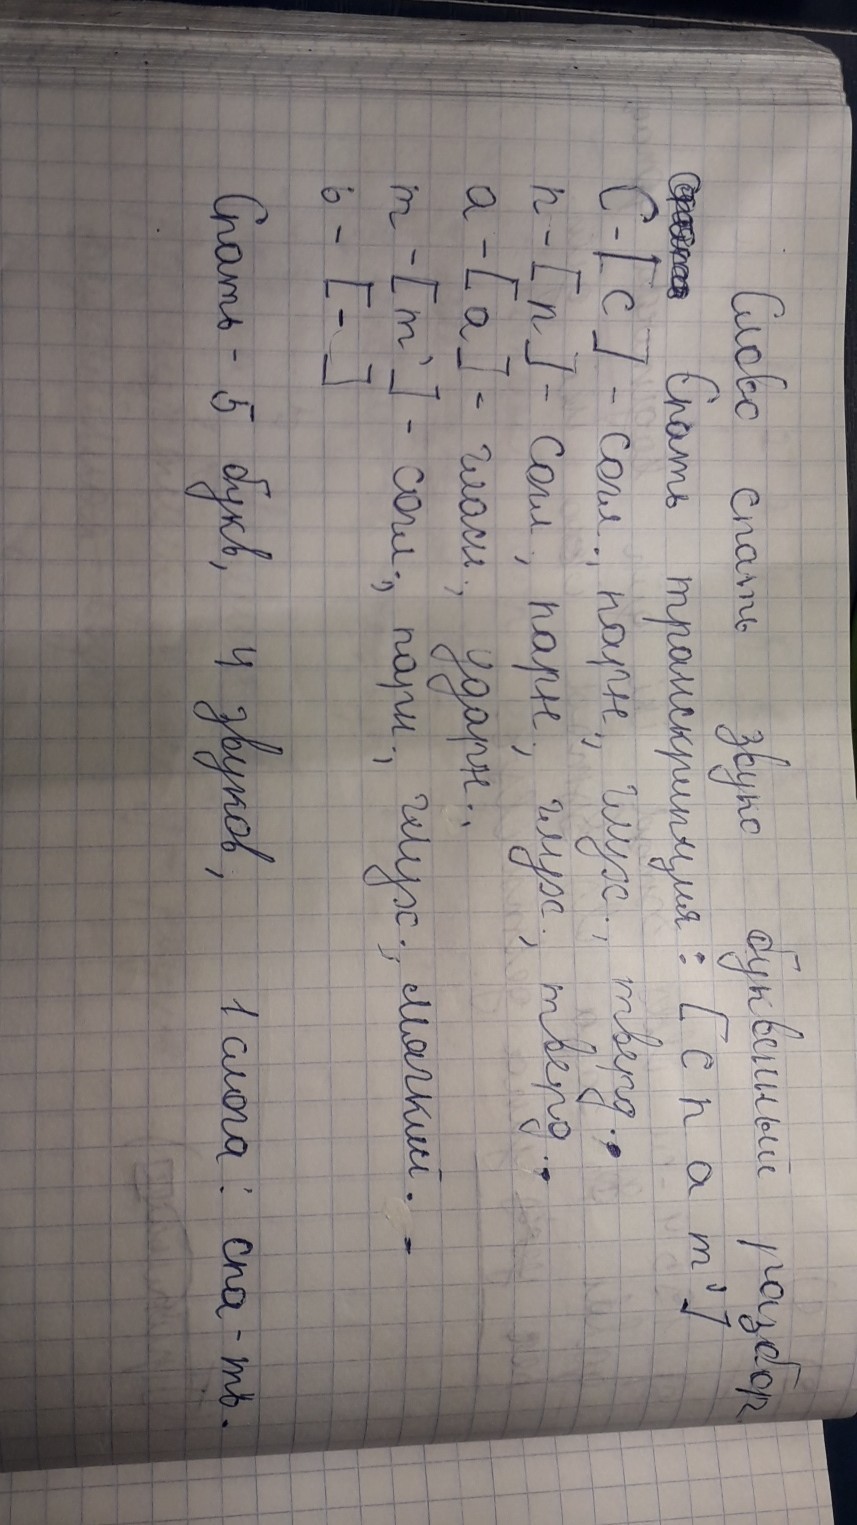 Слово спать звуко буквенный разбор
Спать транскрипция: [с п а т']
С - [с] - согл., парн., глух., тверд.,
п - [п] - согл, парн., глух., тверд.,
а - [а] - гласн., ударн.,
т - [т'] - согл., парн., глух., мягкий. -
ь - [-]
Спать - 5 букв, 4 звуков, 1 слога: спа-ть.